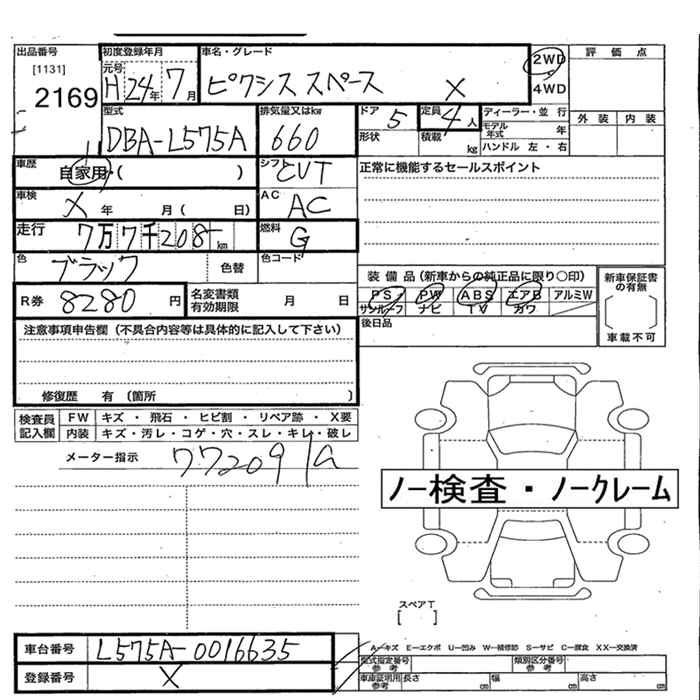 出品番号
[1131]
2169
初度登録年月
元号
H 24年 7月
車名・グレード
ピクシス スペース X
2WD
4WD
評価点
外装 内装
型式
DBA-L575A
排気量又はkw
660
ドア 5
形状
定員 4人
積載 kg
ディーラー・並行
モデル年式 年
ハンドル 左・右
車歴
自家用・( )
シフト
CVT
正常に機能するセールスポイント
車検
X 年 月( 日)
AC
AC
走行
7万7千208km
燃料
G
色
ブラック
色替
色コード
装備品(新車からの純正品に限り〇印)
PS PW ABS エアB アルミW
サンルーフ ナビ TV カワ
後日品
新車保証書の有無
車載不可
R券 8280 円
名変書類有効期限 月 日
注意事項申告欄(不具合内容等は具体的に記入して下さい)
修復歴 有(箇所 )
検査員記入欄
FW キズ・飛石・ヒビ割・リペア跡・X要
内装 キズ・汚レ・コゲ・穴・スレ・キレ・破レ
メーター指示
77209
ノー検査・ノークレーム
スペアT
[ ]
車台番号 L575A-0016635
登録番号 X
A-キズ E-エクボ U-凹み W-補修跡 S-サビ C-腐食 XX-交換済
型式指定番号参考
類別区分番号参考
車庫証明用参考 長さ cm 幅 cm 高さ cm